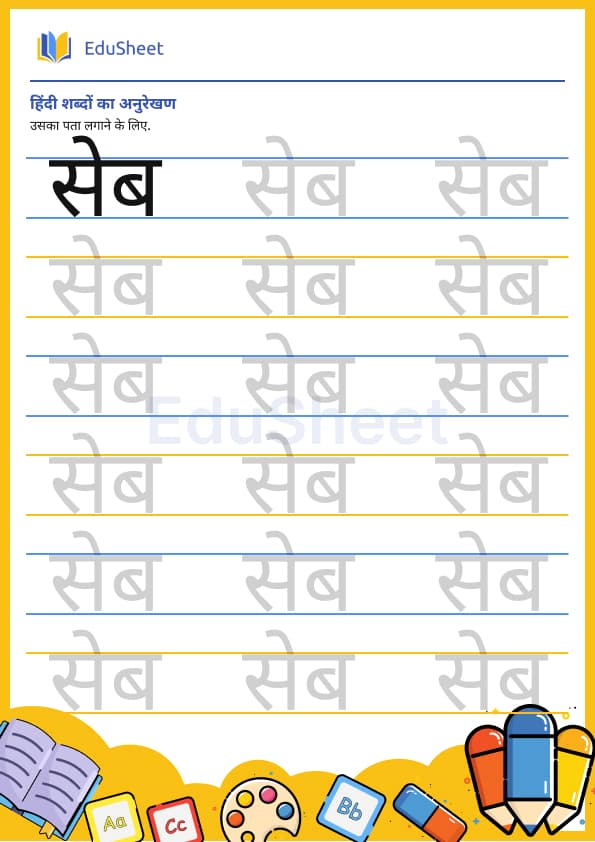 EduSheet
हिंदी शब्दों का अनुरेखण
उसका पता लगाने के लिए.
सेब सेब सेब
सेब सेब सेब
सेब सेब सेब
EduSheet
सेब सेब सेब
सेब सेब सेब
सेब सेब सेब
Aa
Cc
Bb